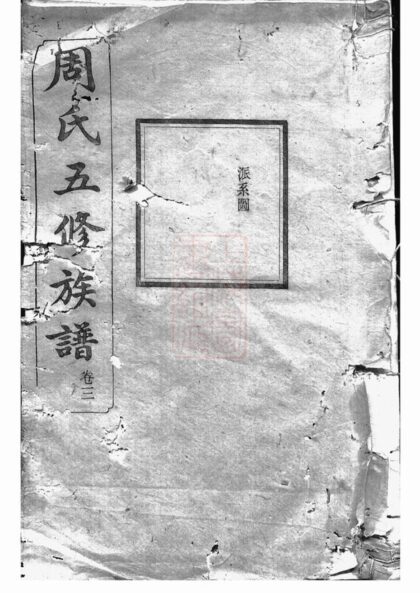 派系圖
周氏五修族譜 卷三